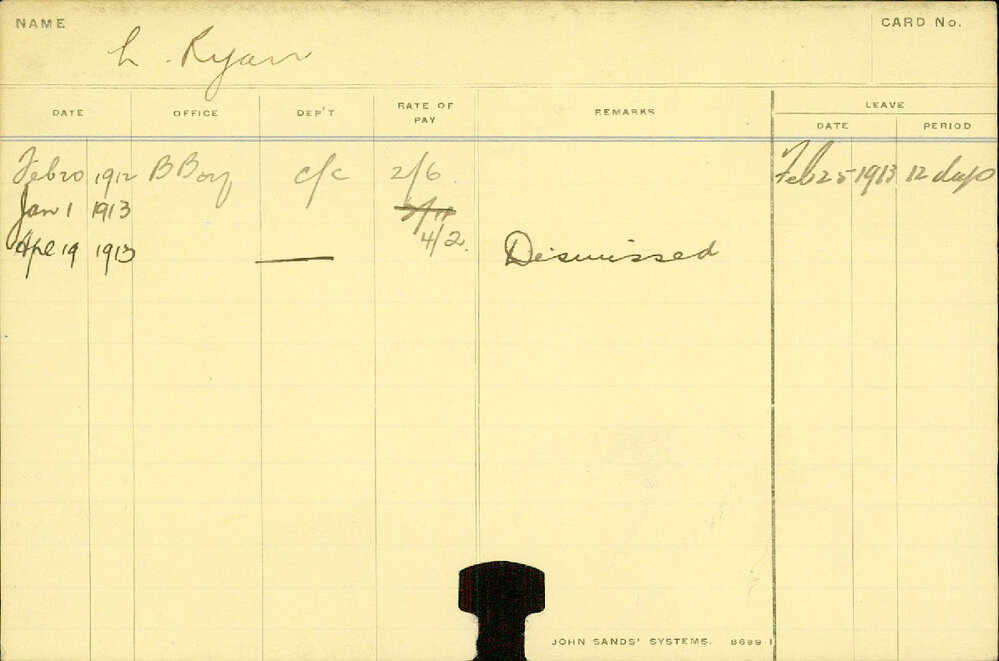 NAME
CARD No.
L. Ryan
DATE OFFICE DEP'T RATE OF PAY REMARKS LEAVE
DATE PERIOD
Feb 20 1912 B Boy c/c 2/6 Feb 25 1913 12 days
Jan 1 1913
4/2.
Apl 19 1913 — Dismissed
JOHN SANDS' SYSTEMS. 8689-1